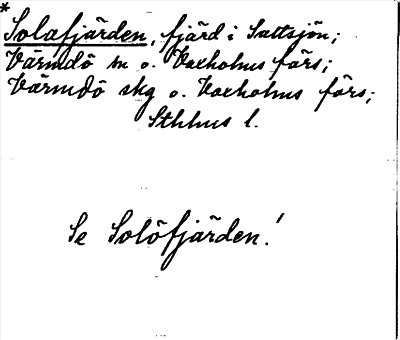 *Solafjärden, fjärd i Saltsjön;
Värmdö sn o. Vaxholms förs;
Värmdö skg o. Vaxholms förs;
Sthlms l.
Se Solöfjärden!